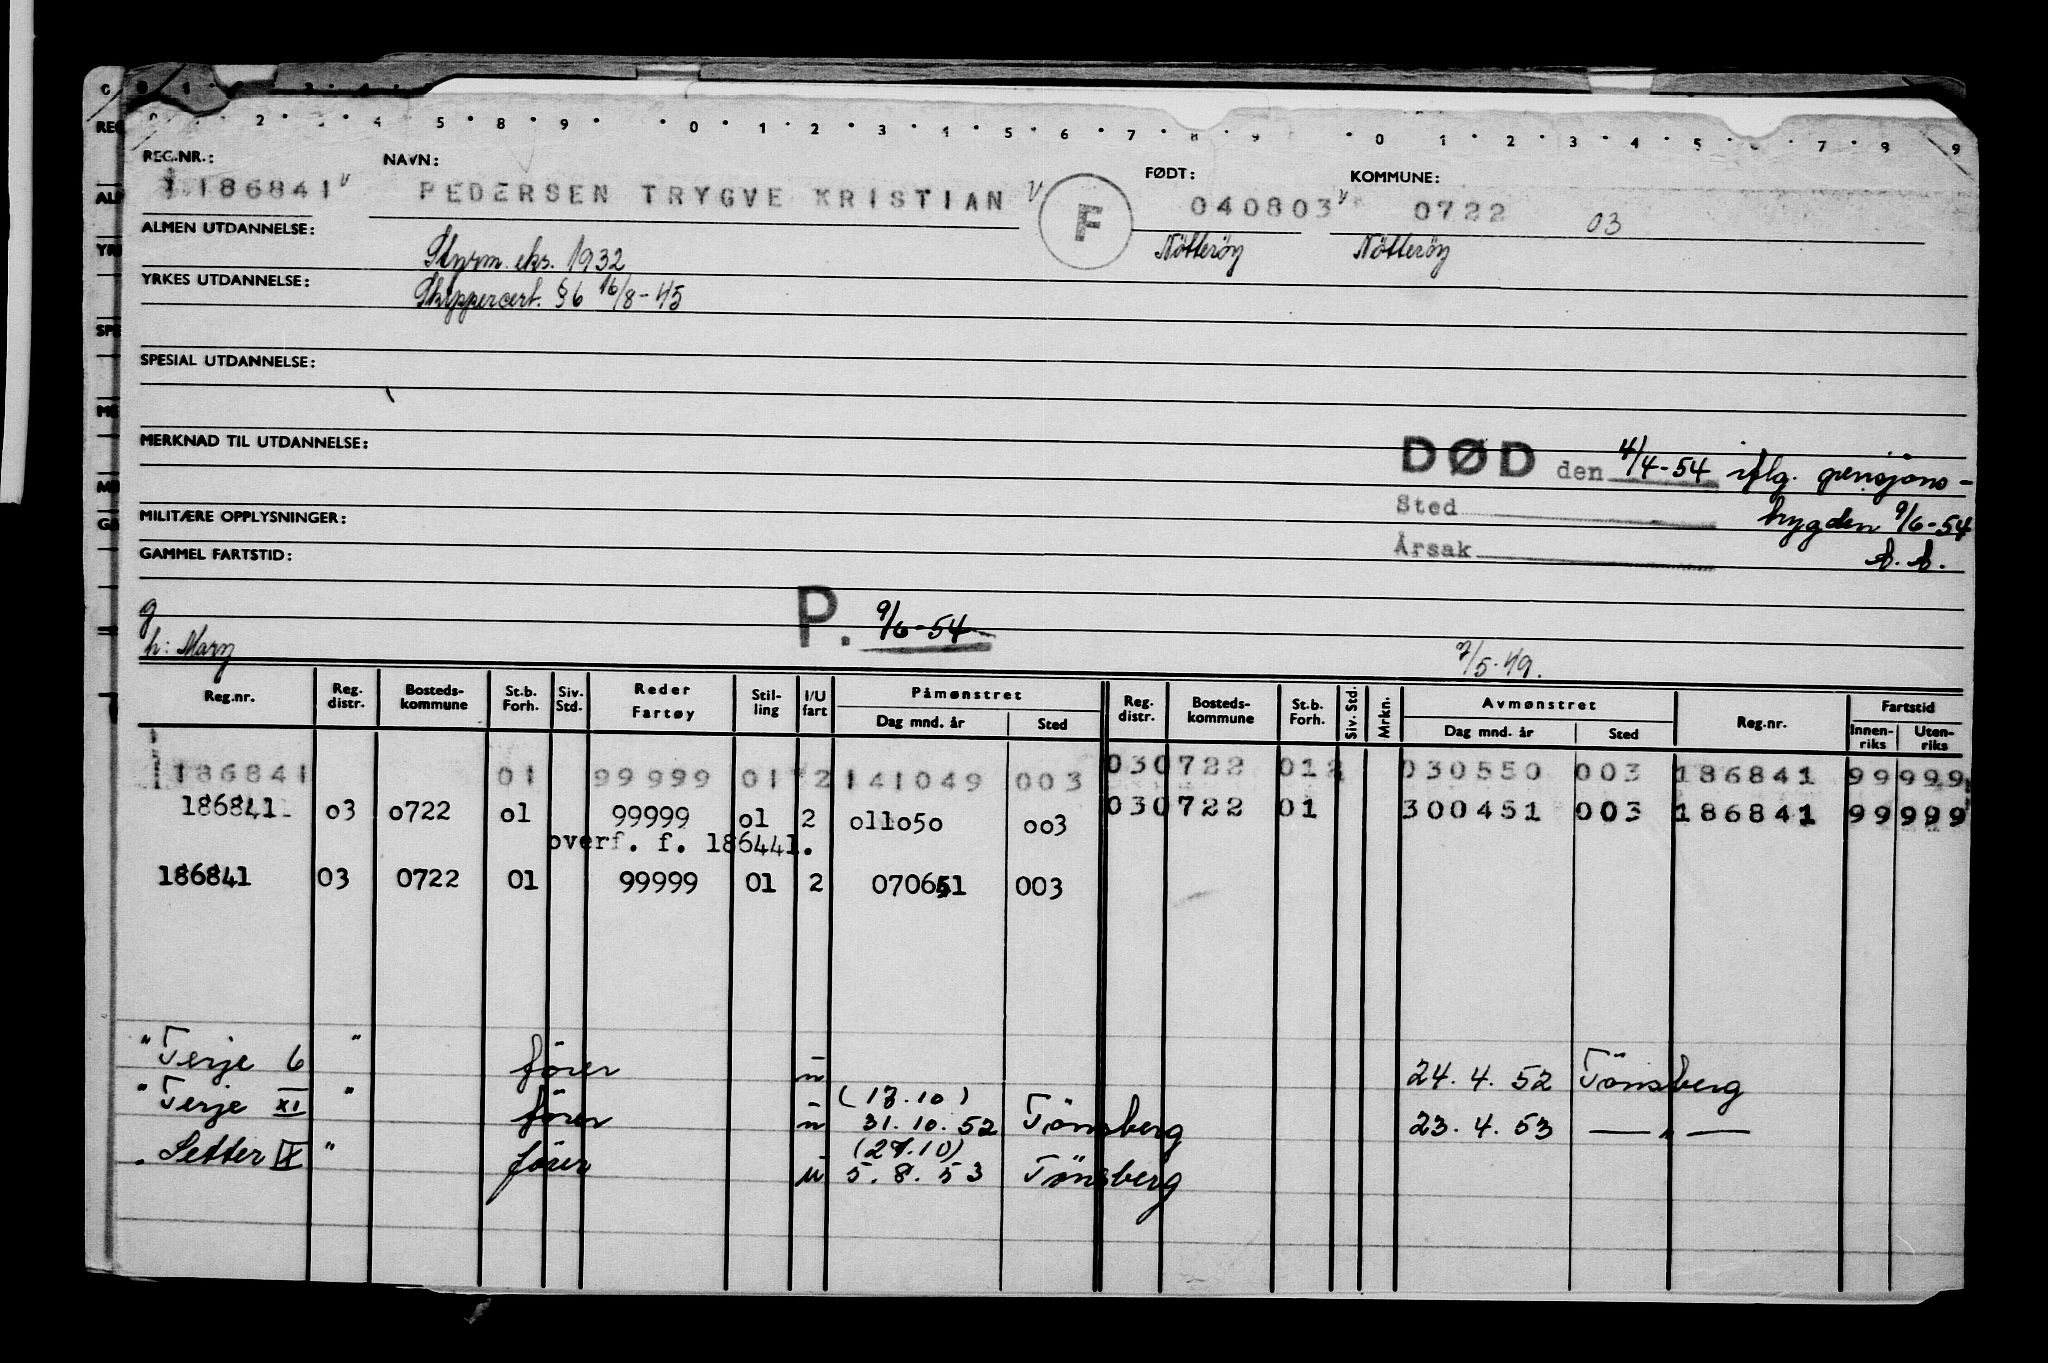 REG.NR.: NAVN: FØDT: KOMMUNE:
1186841 PEDERSEN TRYGVE KRISTIAN F 040803 0722 03
ALMEN UTDANNELSE: Styrm. eks. 1932 Nötteröy Nötteröy
YRKES UTDANNELSE: Skippercert. §6 16/8-45
SPESIAL UTDANNELSE:
MERKNAD TIL UTDANNELSE:
DØD den 4/4-54 iflg. pensjons-
Sted trygden 9/6-54
MILITÆRE OPPLYSNINGER:
Årsak A. A.
GAMMEL FARTSTID:
g P. 9/6-54
h: Mary 7/5-49.
Reg.nr. Reg. distr. Bosteds-kommune St.b. Forh. Siv. Std. Reder Fartøy Stil-ling I/U fart Påmønstret Dag mnd. år Sted Reg. distr. Bosteds-kommune St.b. Forh. Siv. Std. Mrkn. Avmønstret Dag mnd. år Sted Reg.nr. Fartstid Innen-riks Uten-riks
186841 01 99999 01 2 141049 003 030722 012 030550 003 186841 99999
186841 03 0722 01 99999 01 2 011050 003 030722 01 300451 003 186841 99999
overf. f. 186441.
186841 03 0722 01 99999 01 2 070651 003
"Terje 6 " förer u 24.4.52 Tönsberg
(17.10)
"Terje XI " förer u 31.10.52 Tönsberg 23.4.53 — " —
(27.10)
Setter IX " förer u 5.8.53 Tönsberg